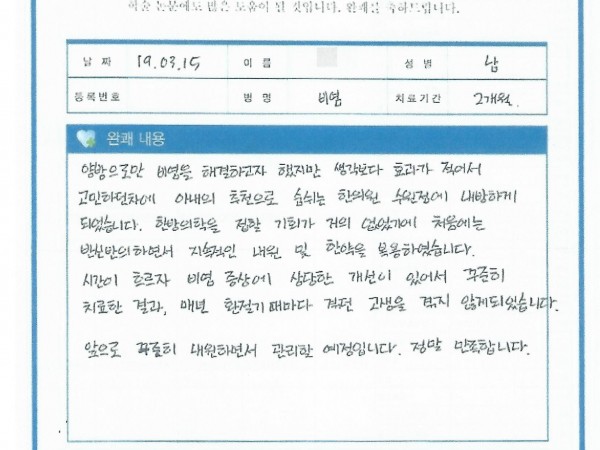 학술 논문에도 많은 도움이 될 것입니다. 완쾌를 축하드립니다.
날 짜 19.03.15 이 름 성 별 남
등록번호 병 명 비염 치료기간 2개월.
완쾌 내용
양방으로만 비염을 해결하고자 했지만 생각보다 효과가 적어서
고민하던차에 아내의 추천으로 숨쉬는 한의원 수원점에 내방하게
되었습니다. 한방의학을 접할 기회가 거의 없었기에 처음에는
반신반의하면서 지속적인 내원 및 한약을 복용하였습니다.
시간이 흐르자 비염 증상에 상당한 개선이 있어서 꾸준히
치료한 결과, 매년 환절기때마다 겪던 고생을 겪지 않게되었습니다.
앞으로 꾸준히 내원하면서 관리할 예정입니다. 정말 만족합니다.